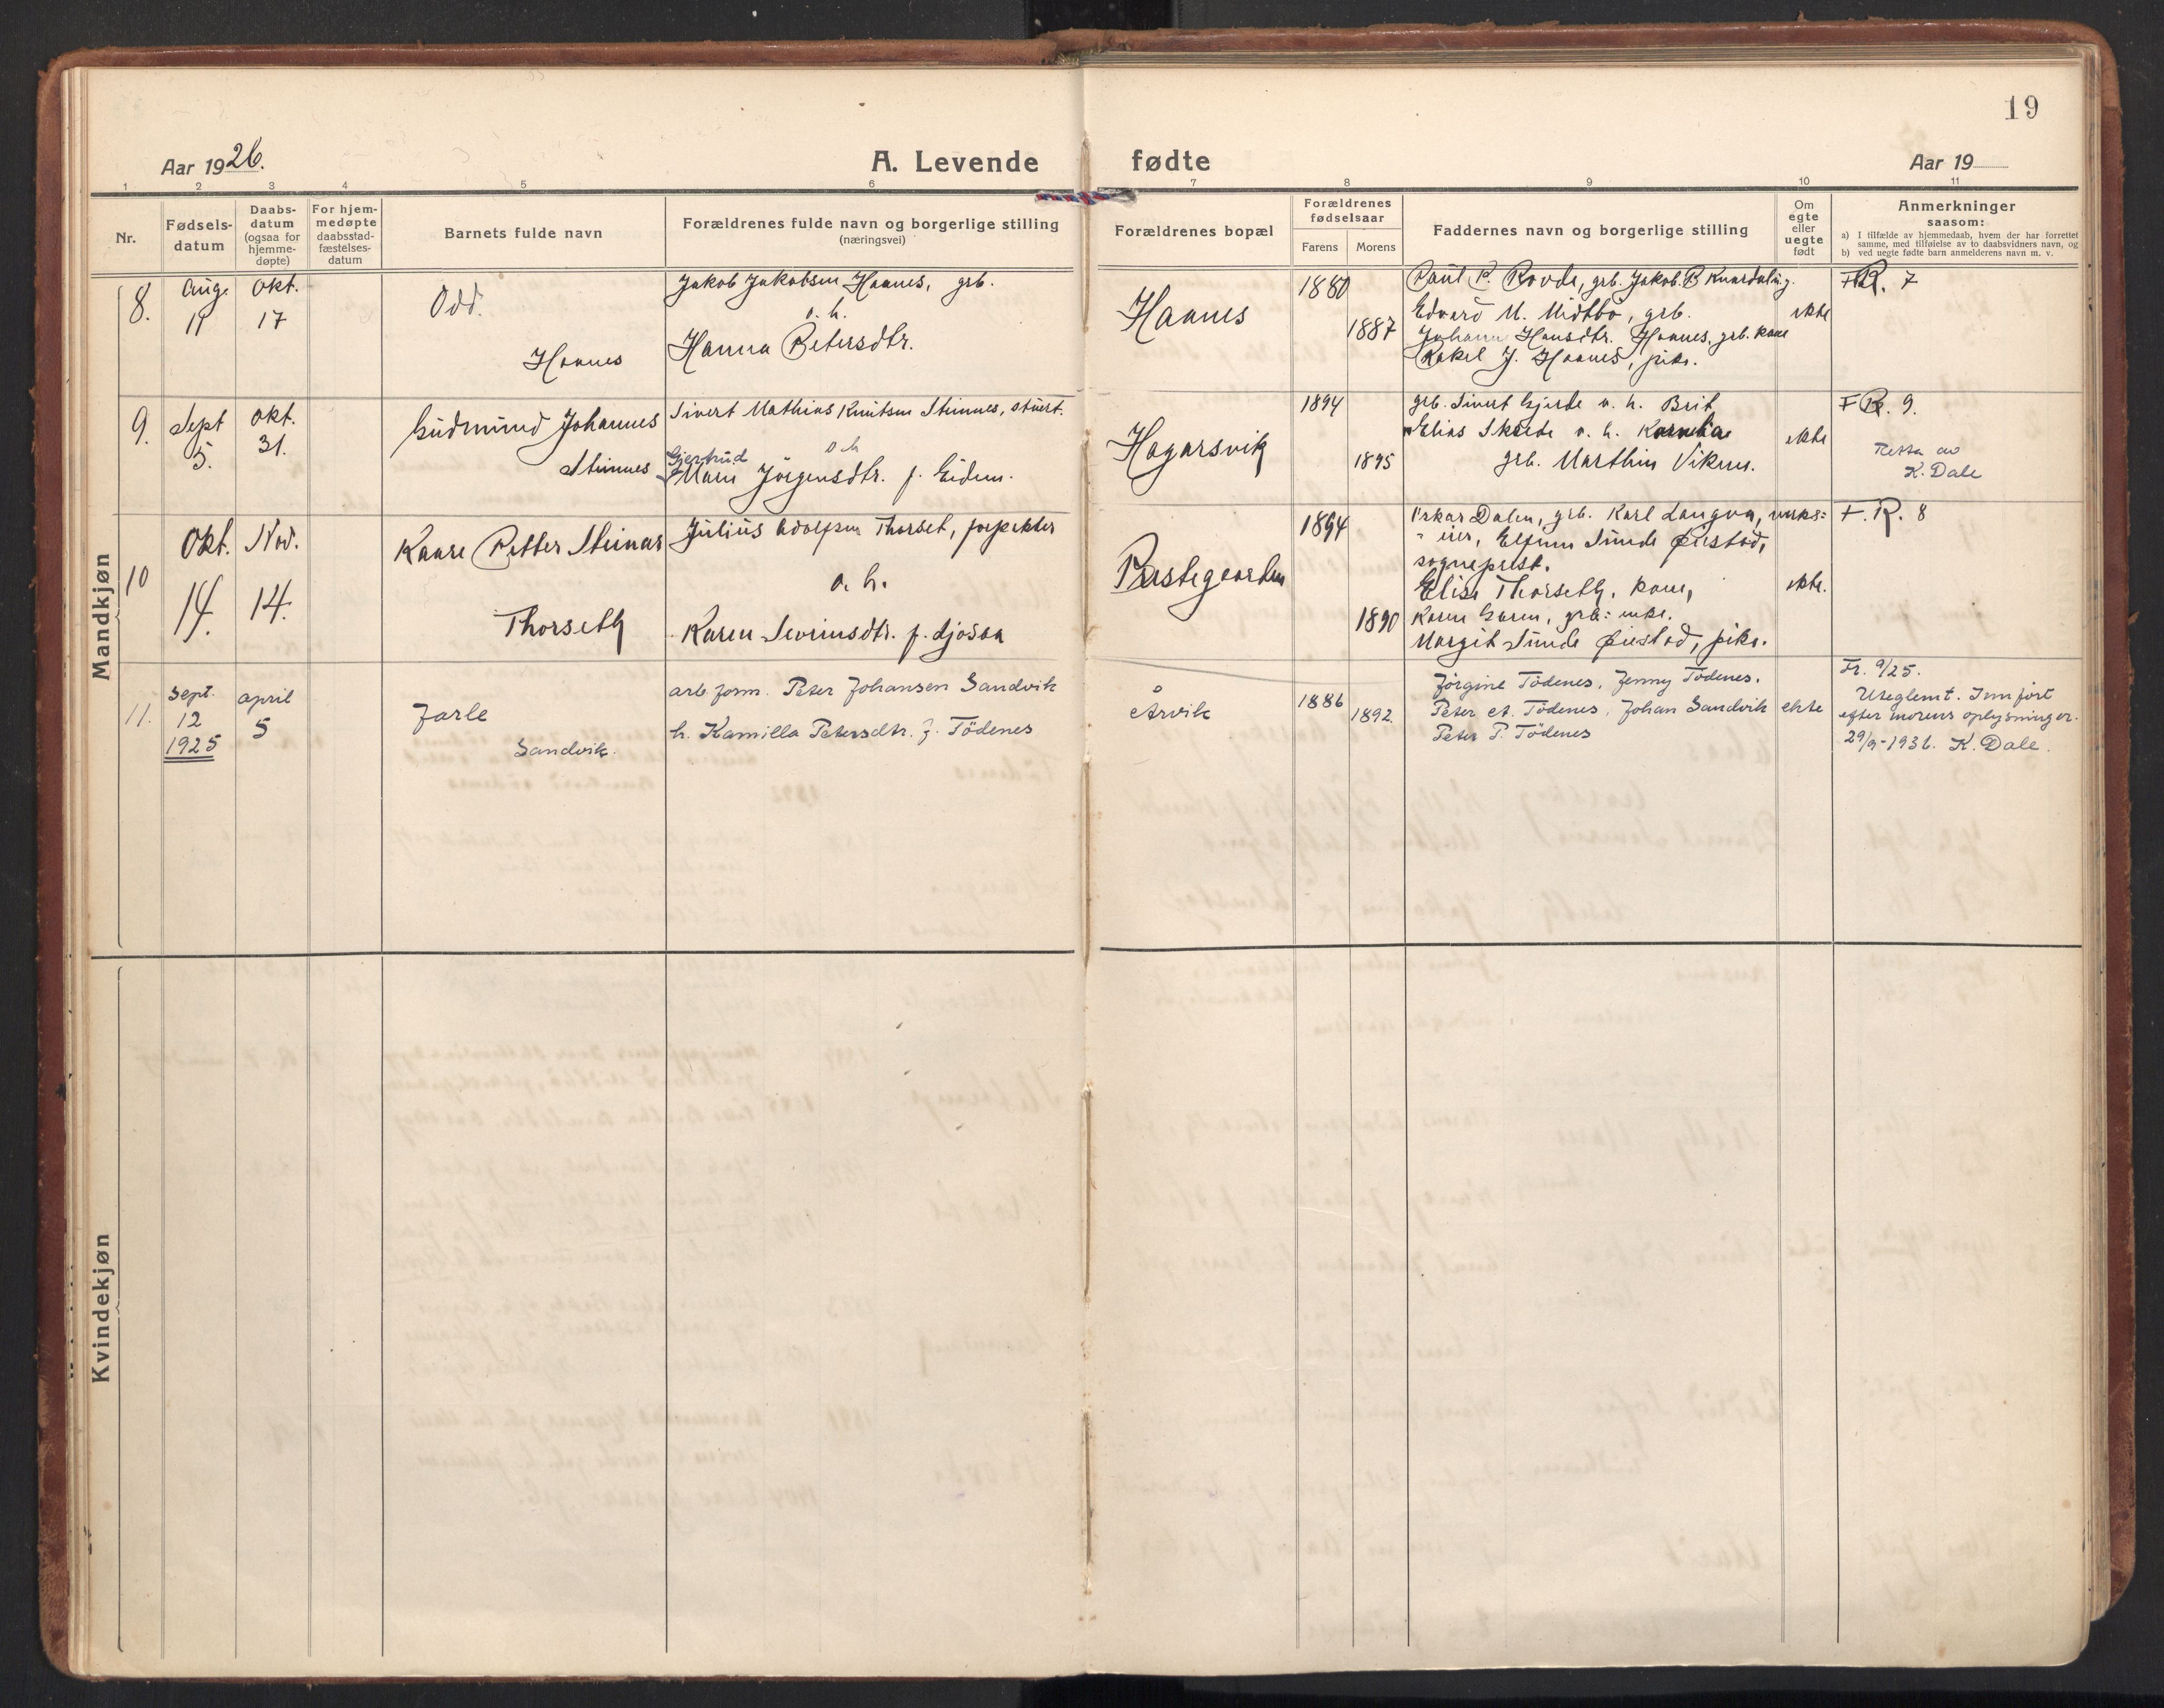 19
Aar 1926.
A. Levende fødte
Aar 19
1 2 3 4 5 6 7 8 9 10 11
Nr.
Fødsels-
datum
Daabs-
datum
(ogsaa for
hjemme-
døpte)
For hjem-
medøpte
daabsstad-
fæstelses-
datum
Barnets fulde navn
Forældrenes fulde navn og borgerlige stilling
(næringsvei)
Forældrenes bopæl
Forældrenes
fødselsaar
Farens Morens
Faddernes navn og borgerlige stilling
Om
egte
eller
uegte
født
Anmerkninger
saasom:
a) I tilfælde av hjemmedaab, hvem der har forrettet
samme, med tilføielse av to daabsvidners navn, og
b) ved uegte fødte barn anmelderens navn m. v.
Mandkjøn
8.
Aug.
11
Okt.
17
Odd.
Haanes
Jakob Jakobsen Haanes, grb.
o. h.
Hanna Petersdtr.
Haanes
1880
1887
Paul P. Rovde, grb. Jakob P. Knardal, ing.
Edvard M. Midtbø, grb.
Johanne Hansdtr. Haanes, grb. kone
Rakel J. Haanes, pike.
ekte
F.R. 7
9.
Sept
5.
Okt.
31.
Gudmund Johannes
Steinnes
Sivert Mathias Knutsen Steinnes, stuert.
o h
Gjertrud
Marie Jörgensdtr. f. Eidem.
Hagarsvik
1894
1895
grb. Sivert Gjerde o. h. Brit
Elias Skeide o. h. Kornelia
grb. Marthin Viken.
ekte
F.R. 9.
Retta av
K. Dale
10
Okt.
14.
Nov.
14.
Kaare Petter Steinar
Thorseth
Julius Adolfsen Thorset, forpakter
o. h.
Karen Severinsdtr. f. Ljosaa
Prestegaarden
1894
1890
Oskar Dalen, grb. Karl Langva, verks-
" eier, Elfinn Sunde Øiestad,
sogneprest.
Elise Thorseth, kone,
Karen Garen, grb: enke.
Margit Sunde Øiestad, pike.
ekte.
F. R. 8
11.
Sept.
12
1925
april
5
Jarle
Sandvik.
arb. form. Peter Johansen Sandvik
h. Kamilla Petersdtr. f. Tödenes
Årvik
1886
1892
Jörgine Tödenes, Jenny Tödenes.
Peter A. Tödenes, Johan Sandvik
Peter P. Tödenes
ekte
Fr. 9/25.
Uteglemt. Innført
efter morens oplysninger.
29/9-1931. K. Dale.
Kvindekjøn